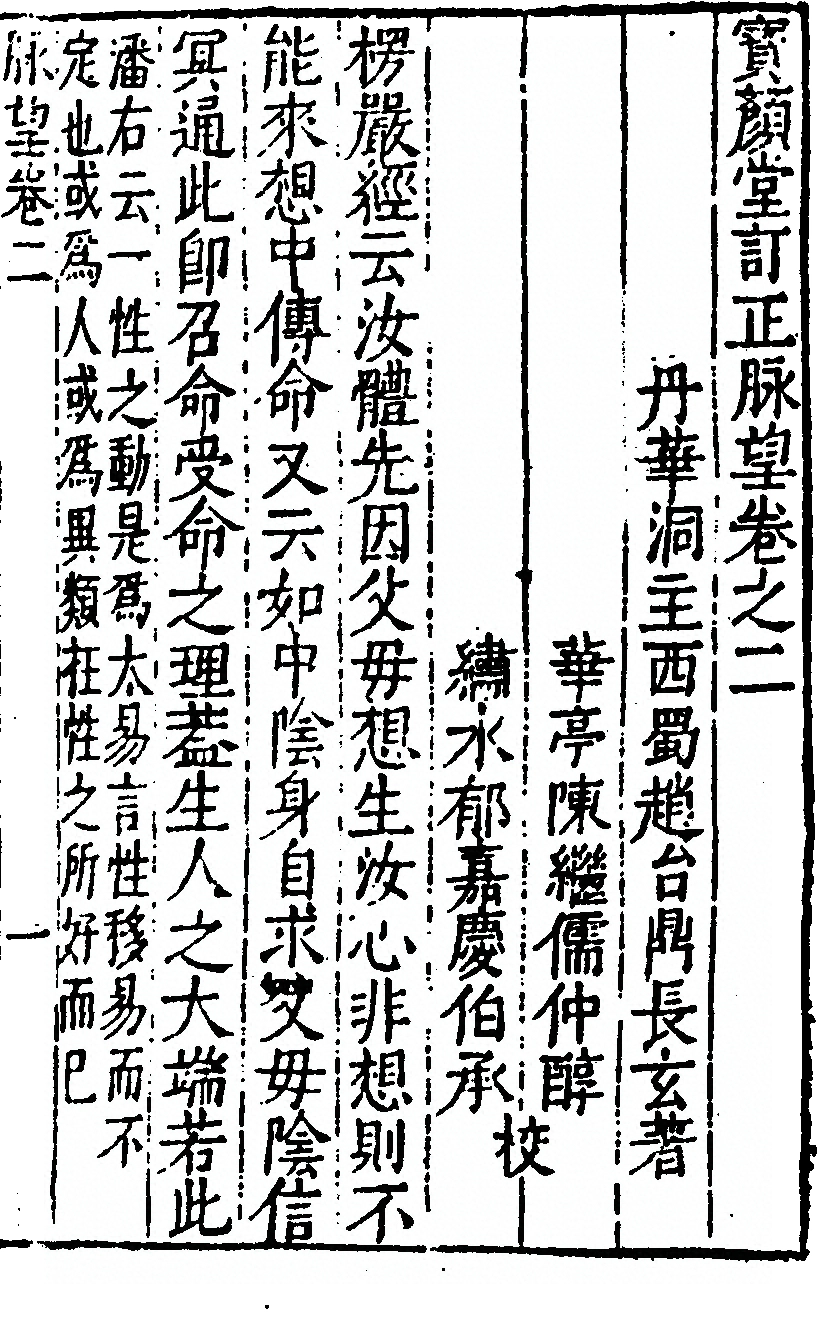 寶顏堂訂正脉望卷之二
丹華洞主西蜀趙台鼎長玄著
華亭陳繼儒仲醇
繡水郁嘉慶伯承
校
楞嚴經云汝體先因父母想生汝心非想則不
能來想中傳命又云如中陰身自求父母陰信
冥通此即召命受命之理蓋生人之大端若此
潘右云一性之動是爲太易言性移易而不
定也或爲人或爲異類在性之所好而已
脉望卷二
一